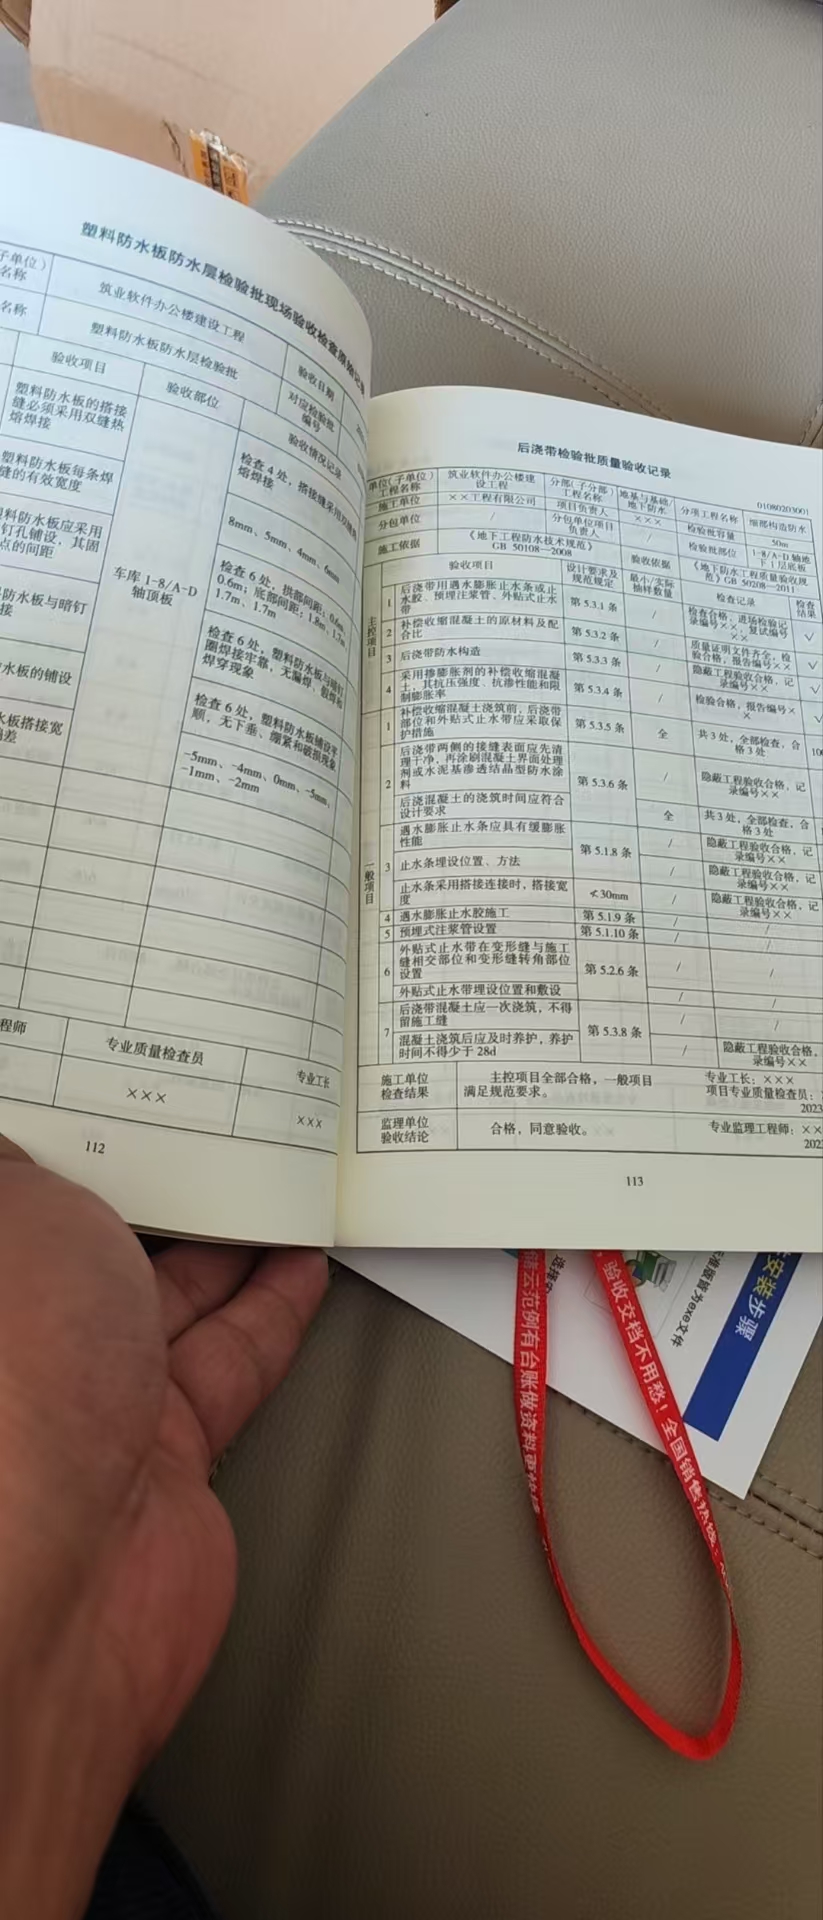 塑料防水板防水层检验批现场验收检查原始记录
子单位）
名称
筑业软件办公楼建设工程
名称
塑料防水板防水层检验批
验收日期
对应检验批
编号
验收项目
验收部位
验收情况记录
塑料防水板的搭接
缝必须采用双缝热
熔焊接
检查4处，搭接缝采用双缝热
熔焊接
塑料防水板每条焊
缝的有效宽度
8mm、5mm、4mm、6mm
料防水板应采用
钉孔铺设，其固
点的间距
车库 1-8/A-D
轴顶板
检查6处，拱部间距：0.6m、
0.6m；底部间距：1.8m、1.7m、
1.7m、1.7m
防水板与暗钉
接
检查6处，塑料防水板与暗钉
圈焊接牢靠，无漏焊、假焊和
焊穿现象
水板的铺设
检查6处，塑料防水板铺设平
顺，无下垂、绷紧和破损现象
水板搭接宽
偏差
-5mm、-4mm、0mm、-5mm、
-1mm、-2mm
程师
专业质量检查员
专业工长
×××
×××
112
后浇带检验批质量验收记录
01080203001
单位（子单位）
工程名称
筑业软件办公楼建
设工程
分部（子分部）
工程名称
地基与基础/
地下防水
分项工程名称
细部构造防水
施工单位
××工程有限公司
项目负责人
×××
检验批容量
50m
分包单位
/
分包单位项目
负责人
/
检验批部位
1-8/A-D 轴地
下1层底板
施工依据
《地下工程防水技术规范》
GB 50108—2008
验收依据
《地下防水工程质量验收规
范》GB 50208—2011
验收项目
设计要求及
规范规定
最小/实际
抽样数量
检查记录
检查
结果
主控项目
1
后浇带用遇水膨胀止水条或止
水胶、预埋注浆管、外贴式止水
带
第 5.3.1 条
/
检查合格，进场检验记
录编号××，复试编号
××
√
2
补偿收缩混凝土的原材料及配
合比
第 5.3.2 条
/
质量证明文件齐全，检
验合格，报告编号××
√
3
后浇带防水构造
第 5.3.3 条
/
隐蔽工程验收合格，记
录编号××
√
4
采用掺膨胀剂的补偿收缩混凝
土，其抗压强度、抗渗性能和限
制膨胀率
第 5.3.4 条
/
检验合格，报告编号×
×
√
一般项目
1
补偿收缩混凝土浇筑前，后浇带
部位和外贴式止水带应采取保
护措施
第 5.3.5 条
全
共3处，全部检查，合
格3处
2
后浇带两侧的接缝表面应先清
理干净，再涂刷混凝土界面处理
剂或水泥基渗透结晶型防水涂
料
第 5.3.6 条
/
隐蔽工程验收合格，记
录编号××
后浇混凝土的浇筑时间应符合
设计要求
全
共3处，全部检查，合
格3处
3
遇水膨胀止水条应具有缓膨胀
性能
第 5.1.8 条
/
隐蔽工程验收合格，记
录编号××
止水条埋设位置、方法
/
隐蔽工程验收合格，记
录编号××
止水条采用搭接连接时，搭接宽
度
≮30mm
/
隐蔽工程验收合格，记
录编号××
4
遇水膨胀止水胶施工
第 5.1.9 条
/
/
5
预埋式注浆管设置
第 5.1.10 条
/
/
6
外贴式止水带在变形缝与施工
缝相交部位和变形缝转角部位
设置
第 5.2.6 条
/
/
外贴式止水带埋设位置和敷设
/
/
7
后浇带混凝土应一次浇筑，不得
留施工缝
第 5.3.8 条
/
/
混凝土浇筑后应及时养护，养护
时间不得少于 28d
/
隐蔽工程验收合格，
录编号××
施工单位
检查结果
主控项目全部合格，一般项目
满足规范要求。
专业工长：×××
项目专业质量检查员：
2023
监理单位
验收结论
合格，同意验收。
专业监理工程师：××
202
113
安装步骤
准版皆为exe文件
范例有台账做资料
验收交档不用愁！全国销售热线：